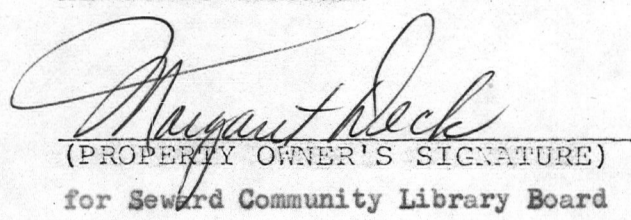 Margaret Deck
(PROPERTY OWNER'S SIGNATURE)
for Seward Community Library Board